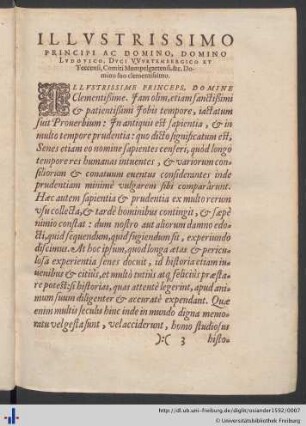 ILLVSTRISSIMO
PRINCIPI AC DOMINO, DOMINO
LVDOVICO, DVCI VVVRTENBERGICO ET
Teccensi, Comiti Mompelgartensi, &c. Do-
mino suo clementissimo.
ILLVSTRISSIME PRINCEPS, DOMINE
Clementissime. Iam olim, etiam sanctissimi
& patientissimi Iobi tempore, iactatum
fuit Prouerbium: In antiquis est sapientia, & in
multo tempore prudentia: quo dicto significatum est,
Senes etiam eo nomine sapientes censeri, quòd longo
tempore res humanas intuentes, & variorum con-
siliorum & conatuum euentus considerantes inde
prudentiam minimè vulgarem sibi comparârunt.
Hæc autem sapientia & prudentia ex multo rerum
vsu collecta, & tardè hominibus contingit, & sæpè
nimio constat: dum nostro aut aliorum damno edo-
cti, quid sequendum, quid fugiendum sit, experiundo
discimus. At hoc ipsum, quod longa ætas & pericu-
losa experientia senes docuit, id historia etiam iu-
uenibus & citiùs, et multò tutiùs atq; feliciùs præsta-
re potest: si historias, quas attentè legerint, apud ani-
mum suum diligenter & accuratè expendant. Quæ
enim multis seculis hinc inde in mundo digna memo-
ratu vel gesta sunt, vel acciderunt, homo studiosus
):( 3 histo-
http://dl.ub.uni-freiburg.de/diglit/osiander1592/0007
© Universitätsbibliothek Freiburg